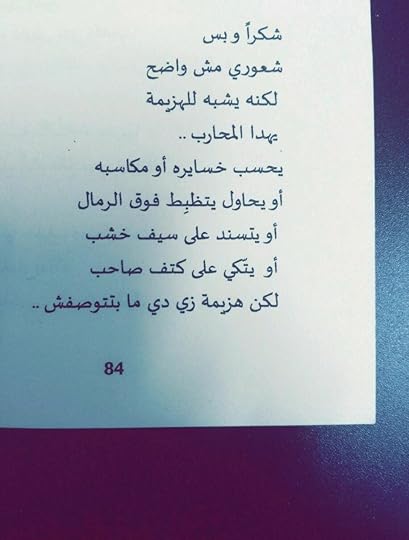 شكراً و بس
شعوري مش واضح
لكنه يشبه للهزيمة
يهدا المحارب ..
يحسب خسايره أو مكاسبه
أو يحاول يتظبِط فوق الرمال
أو يتسند على سيف خشب
أو يتّكي على كتف صاحب
لكن هزيمة زي دي ما بتتوصفش ..
84